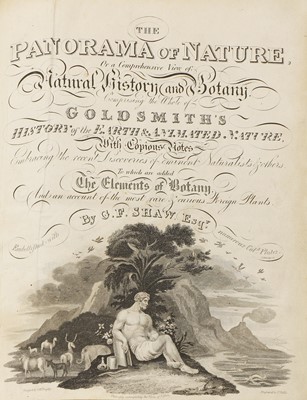 THE
PANORAMA OF NATURE,
Or a Comprehensive View of
Natural History and Botany
Comprising the Whole of
GOLDSMITH'S
HISTORY of the EARTH & ANIMATED NATURE,
With Copious Notes
Embracing the recent Discoveries of eminent Naturalists & others
To which are added
The Elements of Botany
And an account of the most rare & curious Foreign Plants
By G. F. SHAW Esqr.
Embellished with
numerous